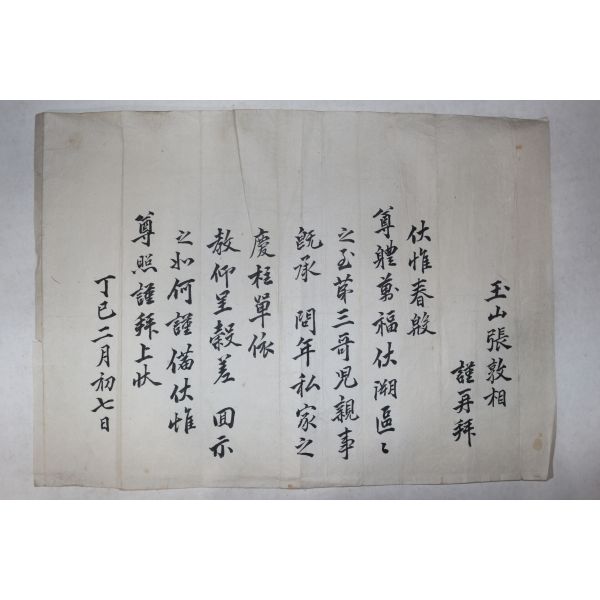 玉山張敦相
謹再拜
伏惟春殷
尊體萬福伏溯區〻
之至第三哥児親事
既承 問年私家之
慶柱單依
教仰呈穀差 回示
之如何謹備伏惟
尊照謹拜上狀
丁巳二月初七日